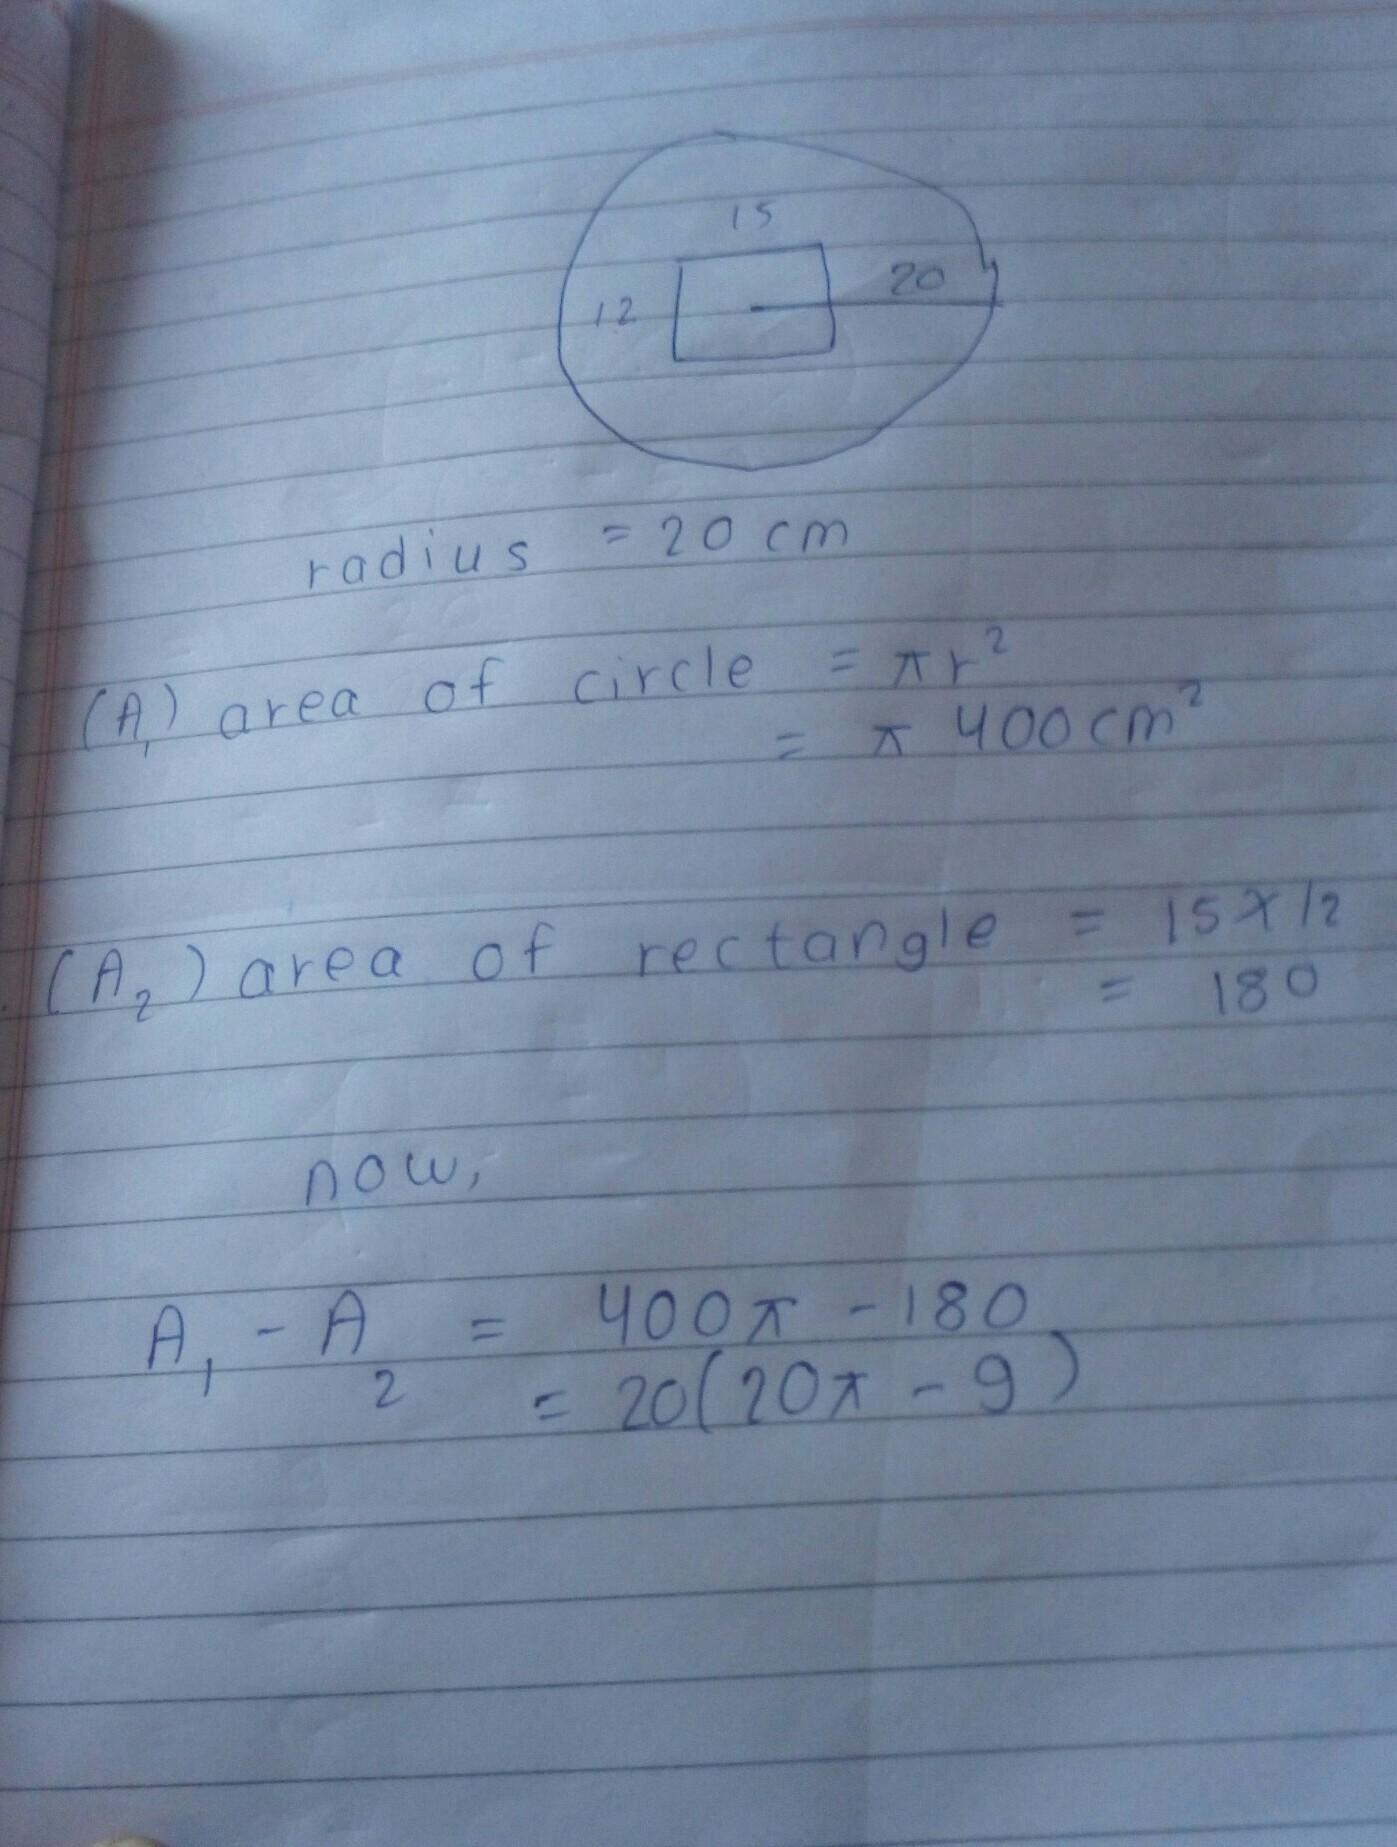 15
12
20
radius = 20 cm
(A₁) area of circle = πr²
= π 400 cm²
(A₂) area of rectangle = 15 x 12
= 180
now,
A₁ - A₂ = 400π - 180
= 20(20π - 9)